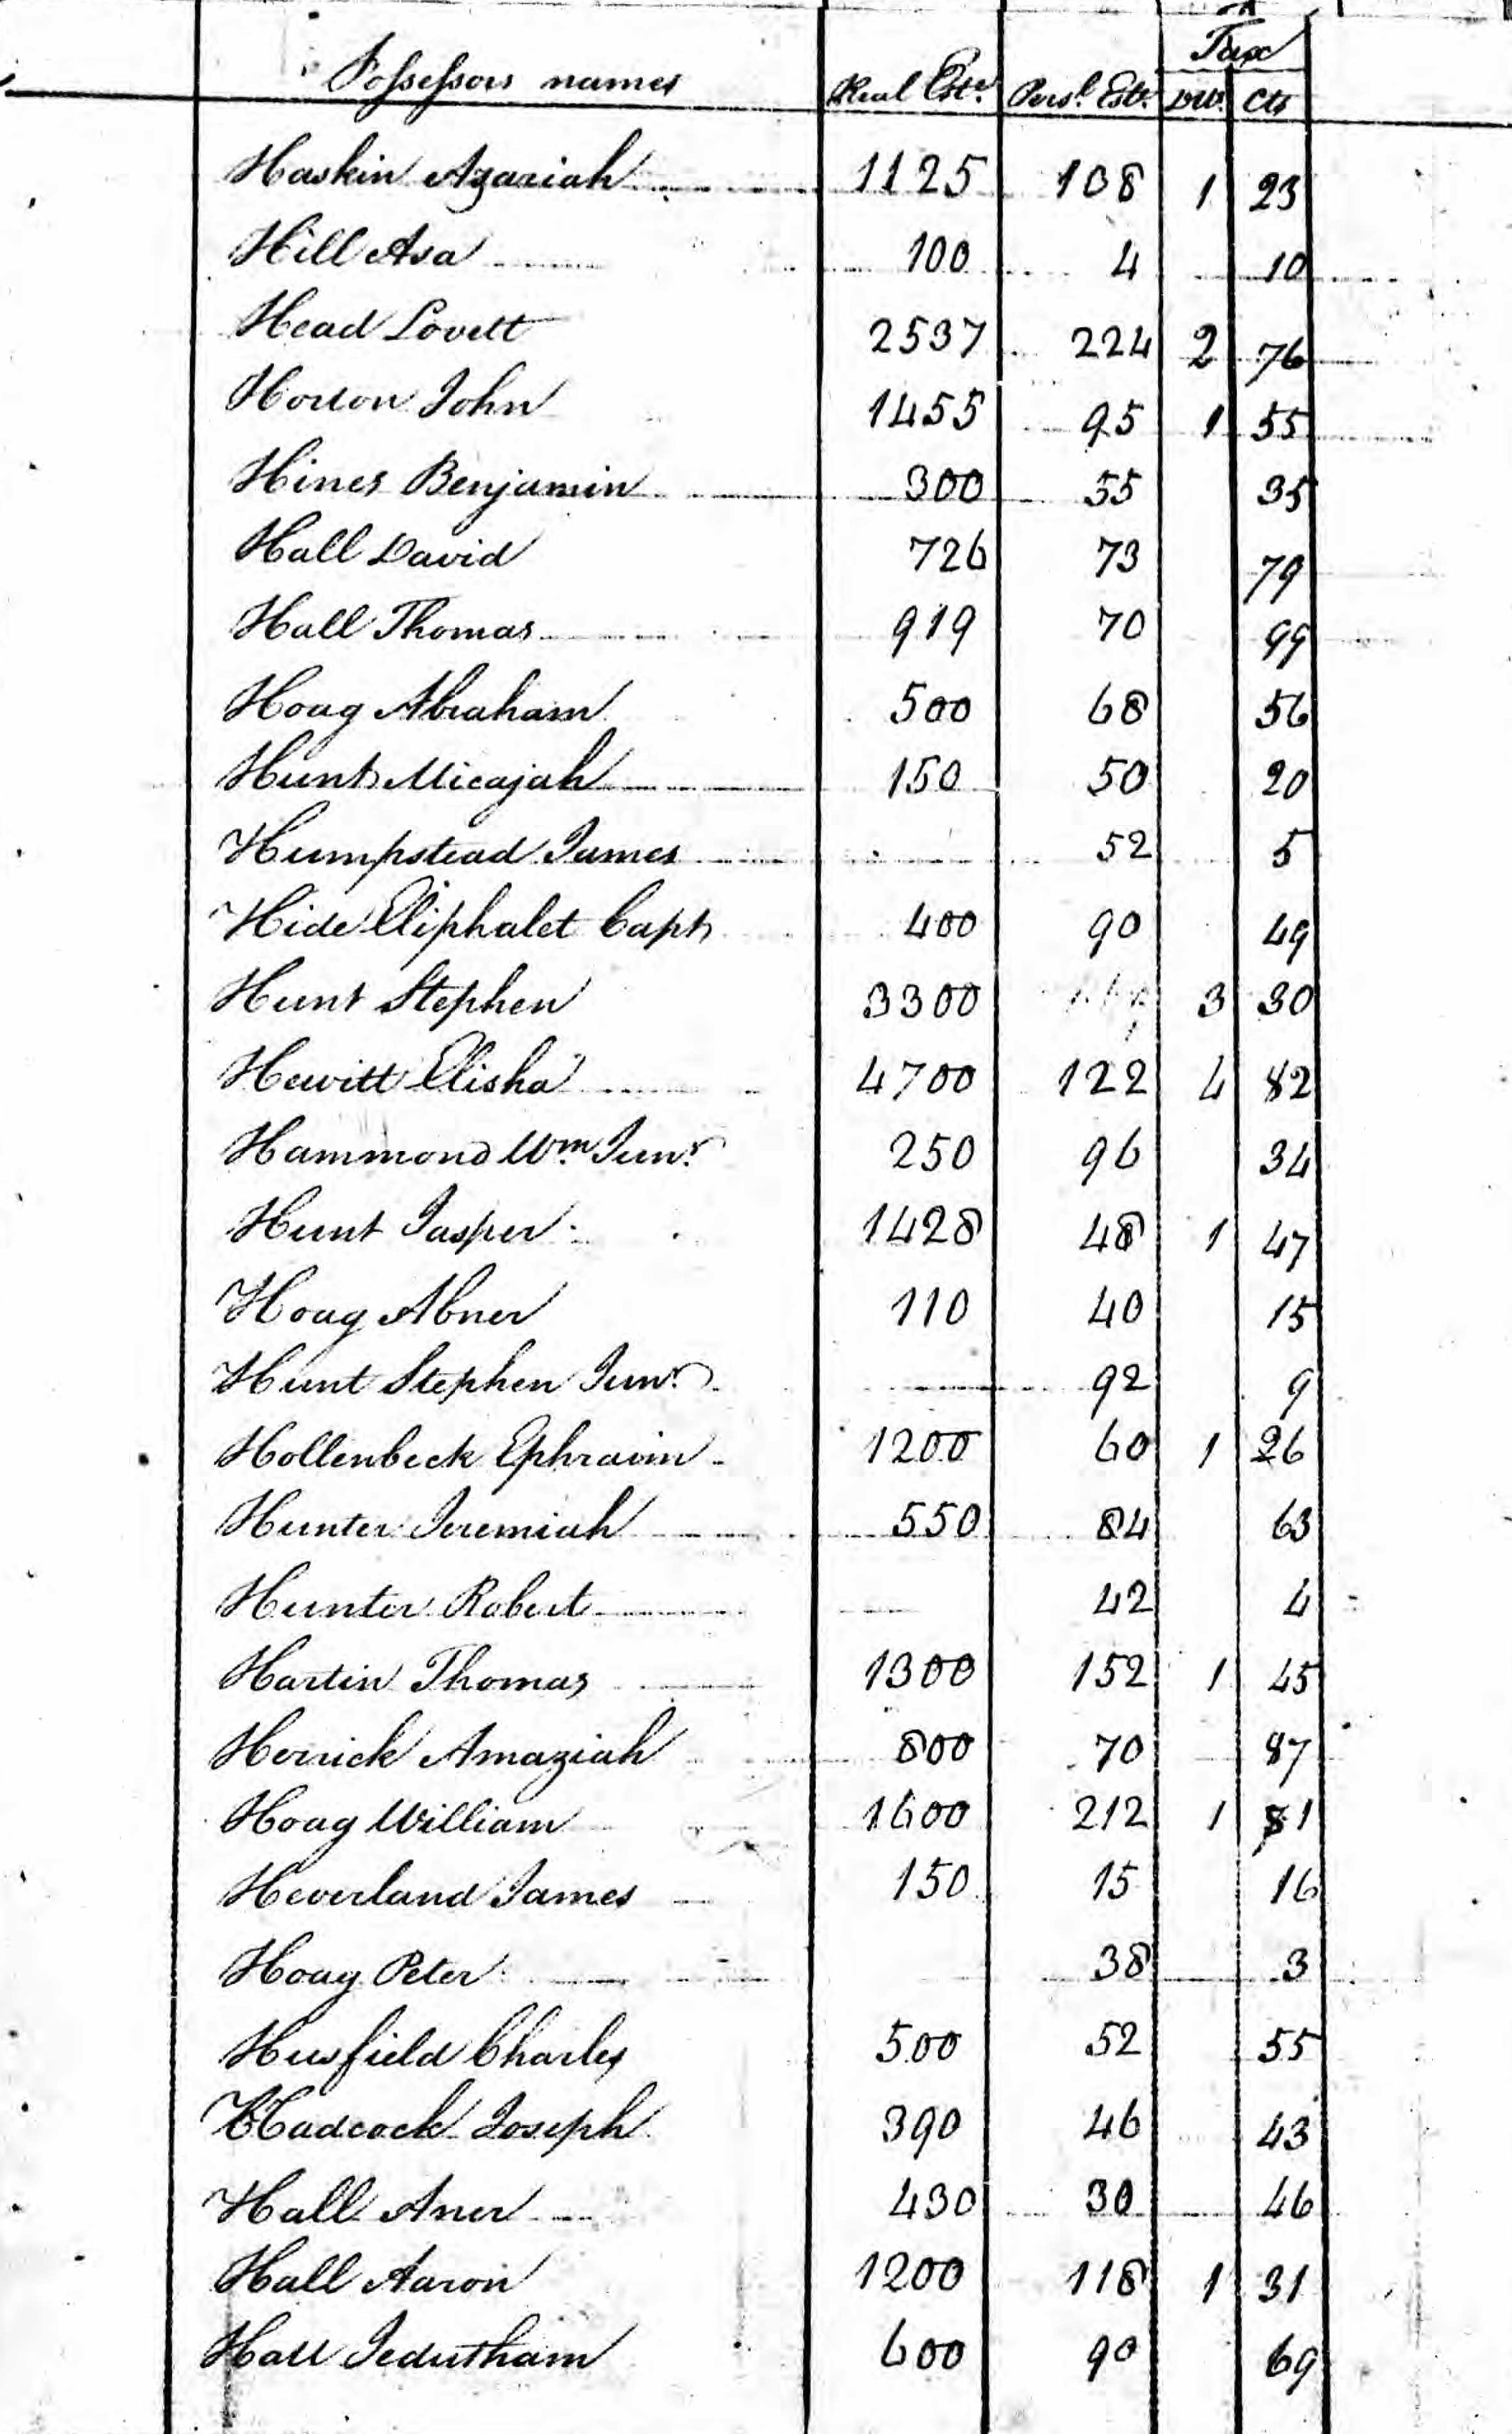 Tax
Possessors names Real Estt. Persl. Estt. Dolls. Cts
Haskin Azariah 1125 108 1 23
Hill Asa 100 4 10
Head Lovett 2537 224 2 76
Horton John 1455 95 1 55
Hines Benjamin 300 55 35
Hall David 726 73 79
Hall Thomas 919 70 99
Hoag Abraham 500 68 56
Hunt Micajah 150 50 20
Humpstead James 52 5
Hide Eliphalet Capt 400 90 49
Hunt Stephen 3300 3 30
Hewitt Elisha 4700 122 4 82
Hammond Wm. Junr. 250 96 34
Hunt Jasper 1428 48 1 47
Hoag Abner 110 40 15
Hunt Stephen Junr. 92 9
Hollenbeck Ephraim 1200 60 1 26
Hunter Jeremiah 550 84 63
Hunter Robert 42 4
Hartin Thomas 1300 152 1 45
Herrick Amaziah 800 70 87
Hoag William 1600 212 1 81
Heverland James 150 15 16
Hoag Peter 38 3
Husfield Charles 500 52 55
Hadcock Joseph 390 46 43
Hall Aner 430 30 46
Hall Aaron 1200 118 1 31
Hall Jedutham 600 90 69